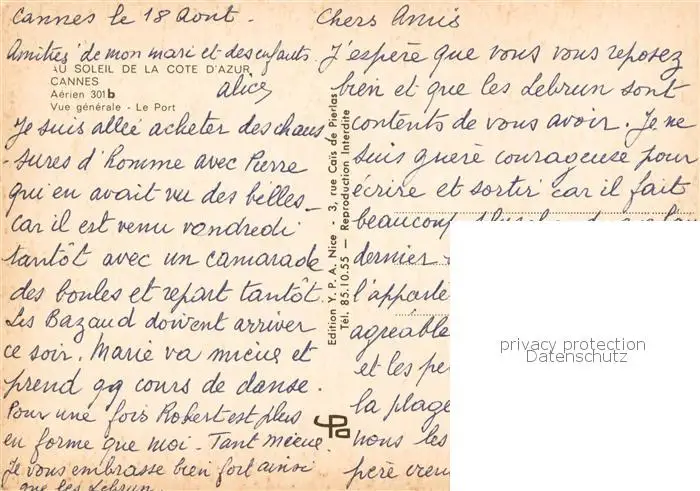 Cannes le 18 Aout.
Chers Amis
J'espère que vous vous reposez
bien et que les Lebrun sont
contents de vous avoir. Je ne
suis guère courageuse pour
écrire et sortir car il fait
beaucoup
dernier
l'apparte
agréable
et les pe
la plage
nous les
père
Je suis allée acheter des chaus
-sures d'homme avec Pierre
qui en avait vu des belles -
car il est venu vendredi
tantôt avec un camarade
des boules et repart tantôt
Les Bazaud doivent arriver
ce soir. Marie va mieux et
prend qq cours de danse.
Pour une fois Robert est plus
en forme que moi - Tant mieux.
Je vous embrasse bien fort ainsi
que les Lebrun.
Amitiés de mon mari et des enfants.
Alice
AU SOLEIL DE LA COTE D'AZUR
CANNES
Aérien 301 b
Vue générale - Le Port
Edition Y. P. A. Nice - 3, rue Caïs de Pierlas
Tél. 85.10.55 — Reproduction Interdite
privacy protection
Datenschutz